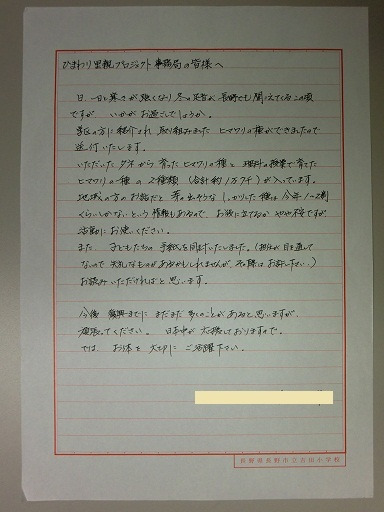 ひまわり里親プロジェクト事務局の皆様へ
日一日と寒さが強くなり冬の足音が長野でも聞こえてくるこの頃
ですが いかがお過ごしでしょうか。
学区の方に紹介され 取り組みました ヒマワリの種ができましたので
送付いたします。
いただいたタネから育ったヒマワリの種と 理科の授業で育てた
ヒマワリの種の 2種類 (合計約1万粒) が入っています。
地域の方のお話だと 芽の出そうな しっかりした種は今年
くらいしかないという情報もあるので お役に立てるか やや不安ですが
活動にお使いください。
また、子どもたちの手紙を同封いたしました。(担任が目を通して
なので 失礼なものがあるかもしれませんが、その際はお許し下さい。)
お読みいただければと思います。
今後 復興までに まだまだ 多くのことがあると思いますが、
頑張ってください。 日本中が応援しておりますので。
では、お体を大切に ご活躍下さい。
長野県長野市立吉田小学校